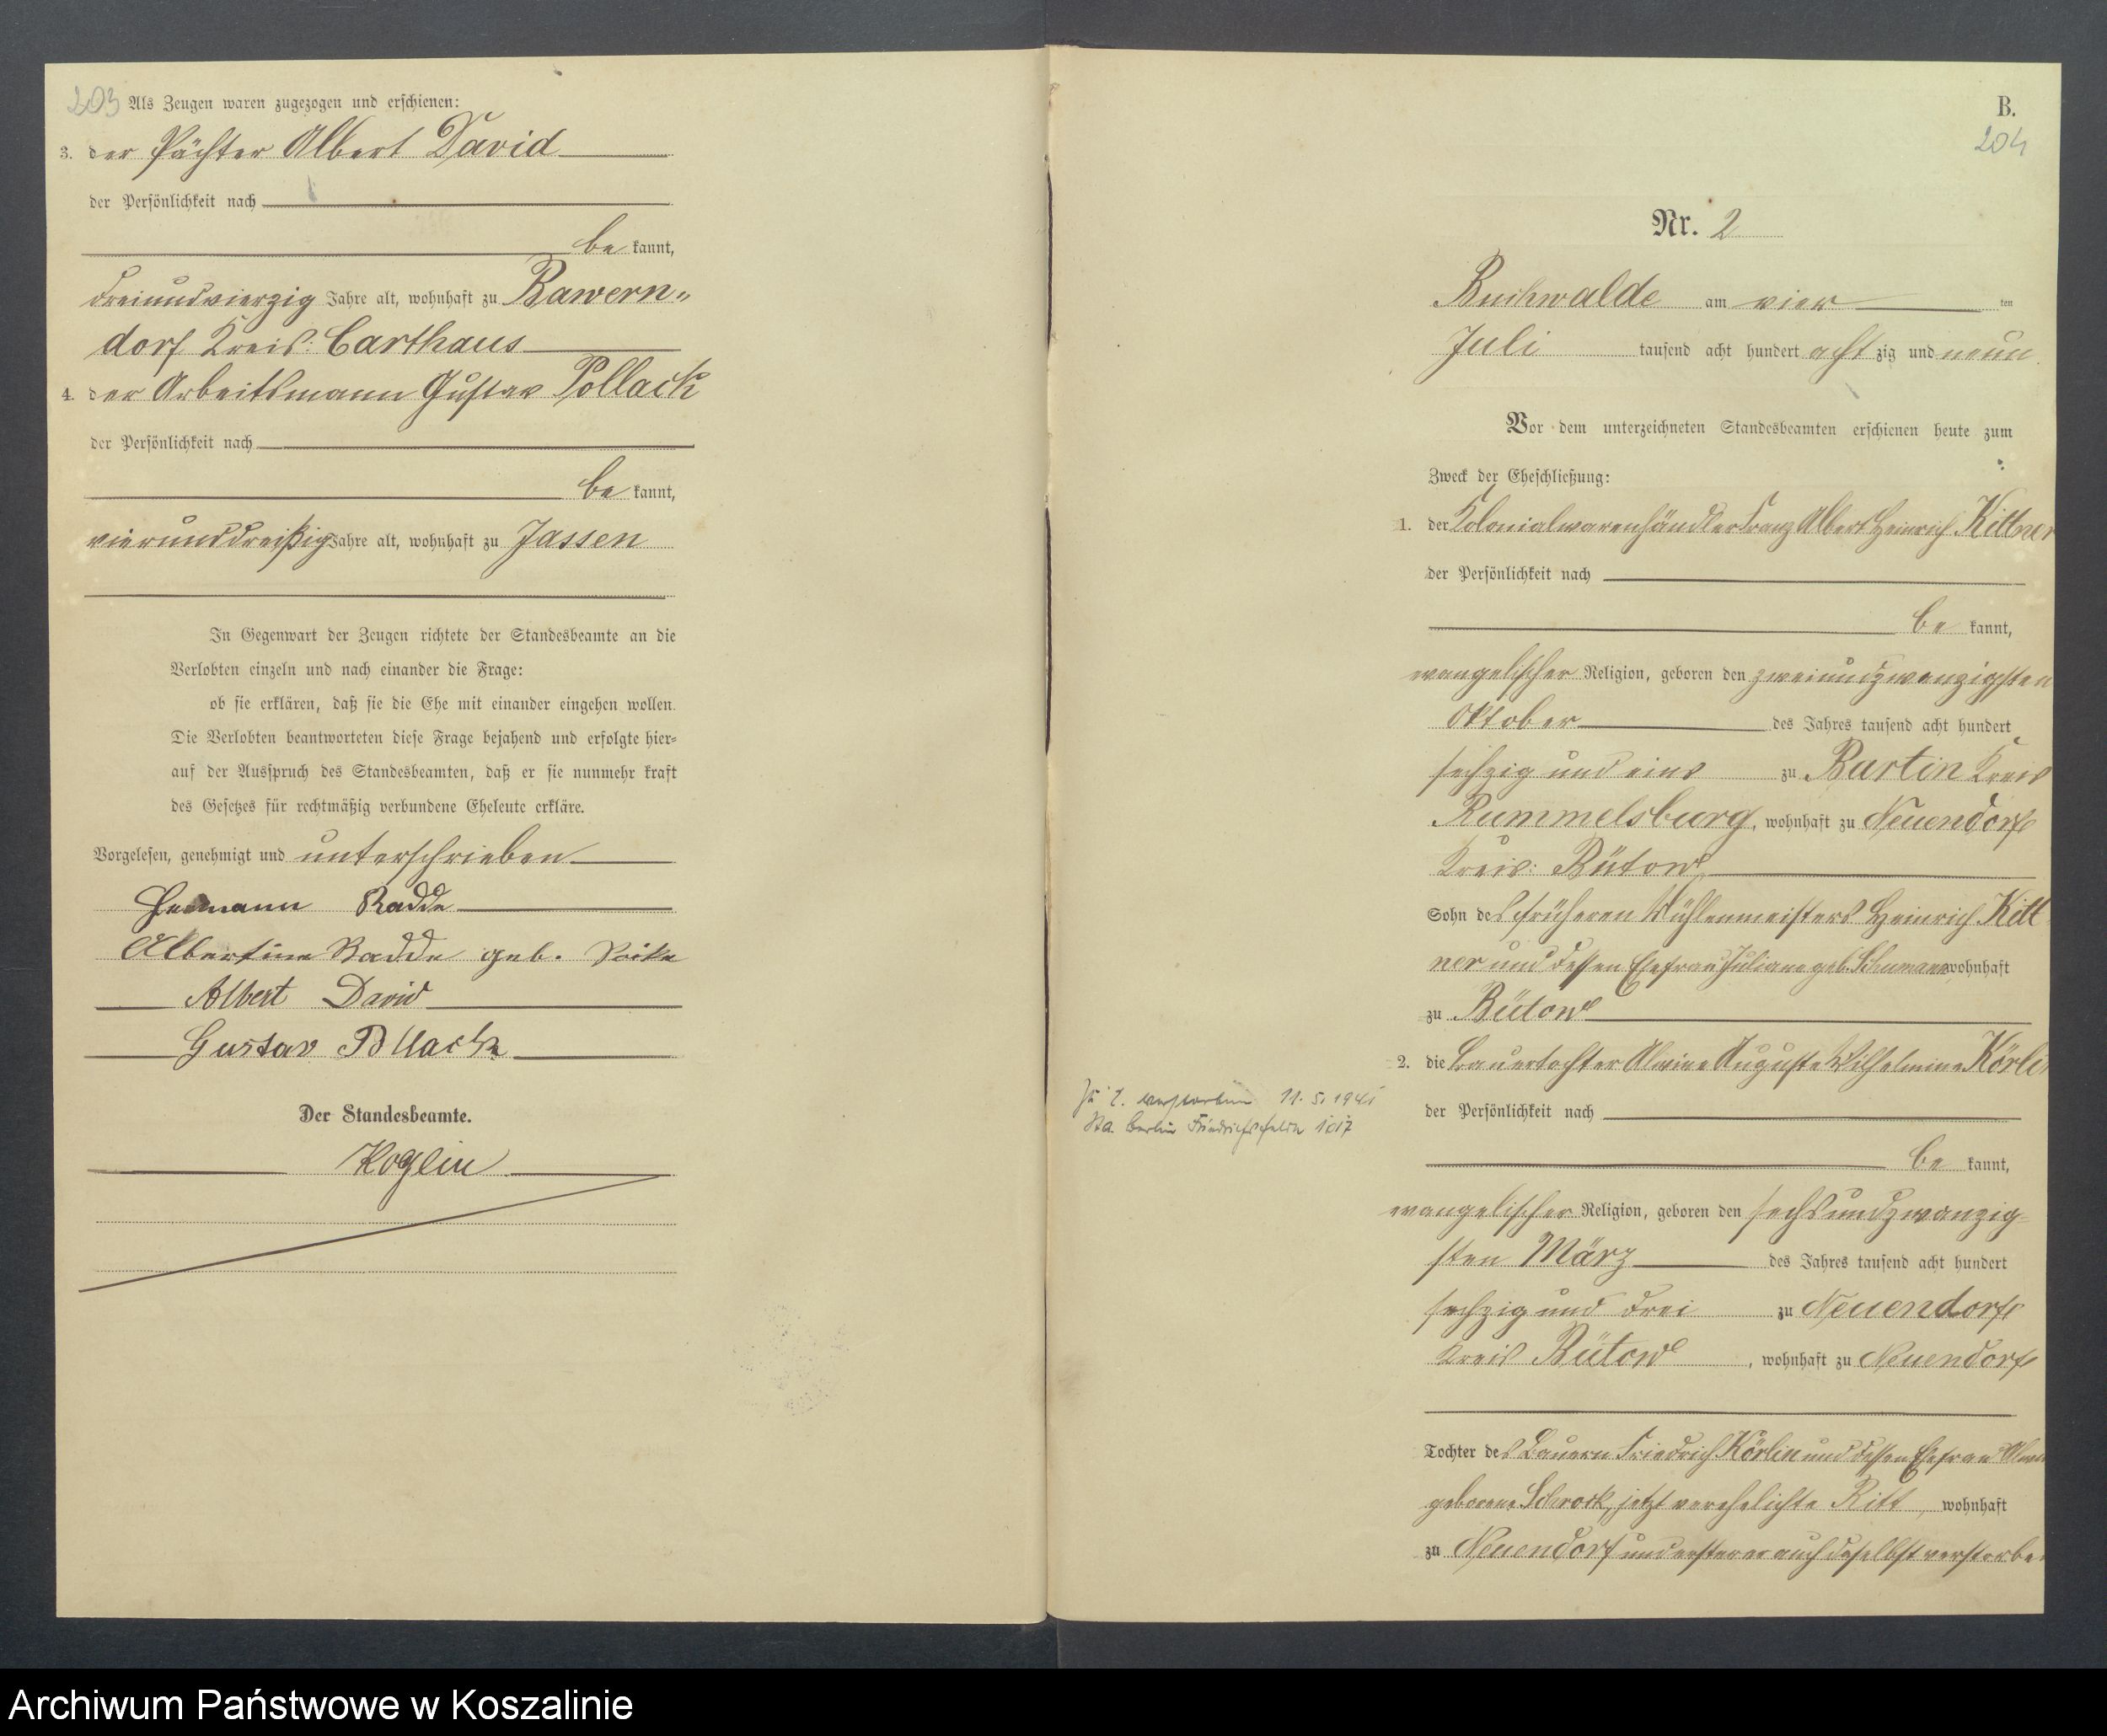 203 Als Zeugen waren zugezogen und erschienen:
3. der Pächter Albert David
der Persönlichkeit nach
be kannt,
dreiundvierzig Jahre alt, wohnhaft zu Bawern„
dorf Kreis: Carthaus
4. der Arbeitsmann Gustav Pollack
der Persönlichkeit nach
be kannt,
vierunddreißig Jahre alt, wohnhaft zu Jassen
In Gegenwart der Zeugen richtete der Standesbeamte an die
Verlobten einzeln und nach einander die Frage:
ob sie erklären, daß sie die Ehe mit einander eingehen wollen.
Die Verlobten beantworteten diese Frage bejahend und erfolgte hier=
auf der Ausspruch des Standesbeamten, daß er sie nunmehr kraft
des Gesetzes für rechtmäßig verbundene Eheleute erkläre.
Vorgelesen, genehmigt und unterschrieben
Hermann Radde
Albertine Radde geb.
Albert David
Gustav Pollack
Der Standesbeamte.
Koglin
B.
204
Nr. 2
Buchwalde am vier ten
Juli tausend acht hundert acht zig und neun
Vor dem unterzeichneten Standesbeamten erschienen heute zum
Zweck der Eheschließung:
1. der Kolonialwarenhändler Franz Albert Heinrich Kittner
der Persönlichkeit nach
be kannt,
evangelischer Religion, geboren den zweiundzwanzigsten
Oktober des Jahres tausend acht hundert
sechzig und eins zu Bartin Kreis
Rummelsburg, wohnhaft zu Neuendorf
Kreis: Bütow
Sohn des früheren Mühlenmeisters Heinrich Kitt
ner und dessen Ehefrau Juliane geb. Schumann wohnhaft
zu Bütow
2. die Bauertochter Alwine Auguste Wilhelmine Körlin
der Persönlichkeit nach
be kannt,
evangelischer Religion, geboren den sechsundzwanzig=
sten März des Jahres tausend acht hundert
sechzig und drei zu Neuendorf
Kreis Bütow, wohnhaft zu Neuendorf
Tochter des Bauern Friedrich Körlin und dessen Ehefrau
geborene Schrock, jetzt verehelichte Ritt, wohnhaft
zu Neuendorf und ersterer auch daselbst verstorben
verstorben 11. 5. 1941
Sta. Berlin Friedrichsfelde 1017
Archiwum Państwowe w Koszalinie